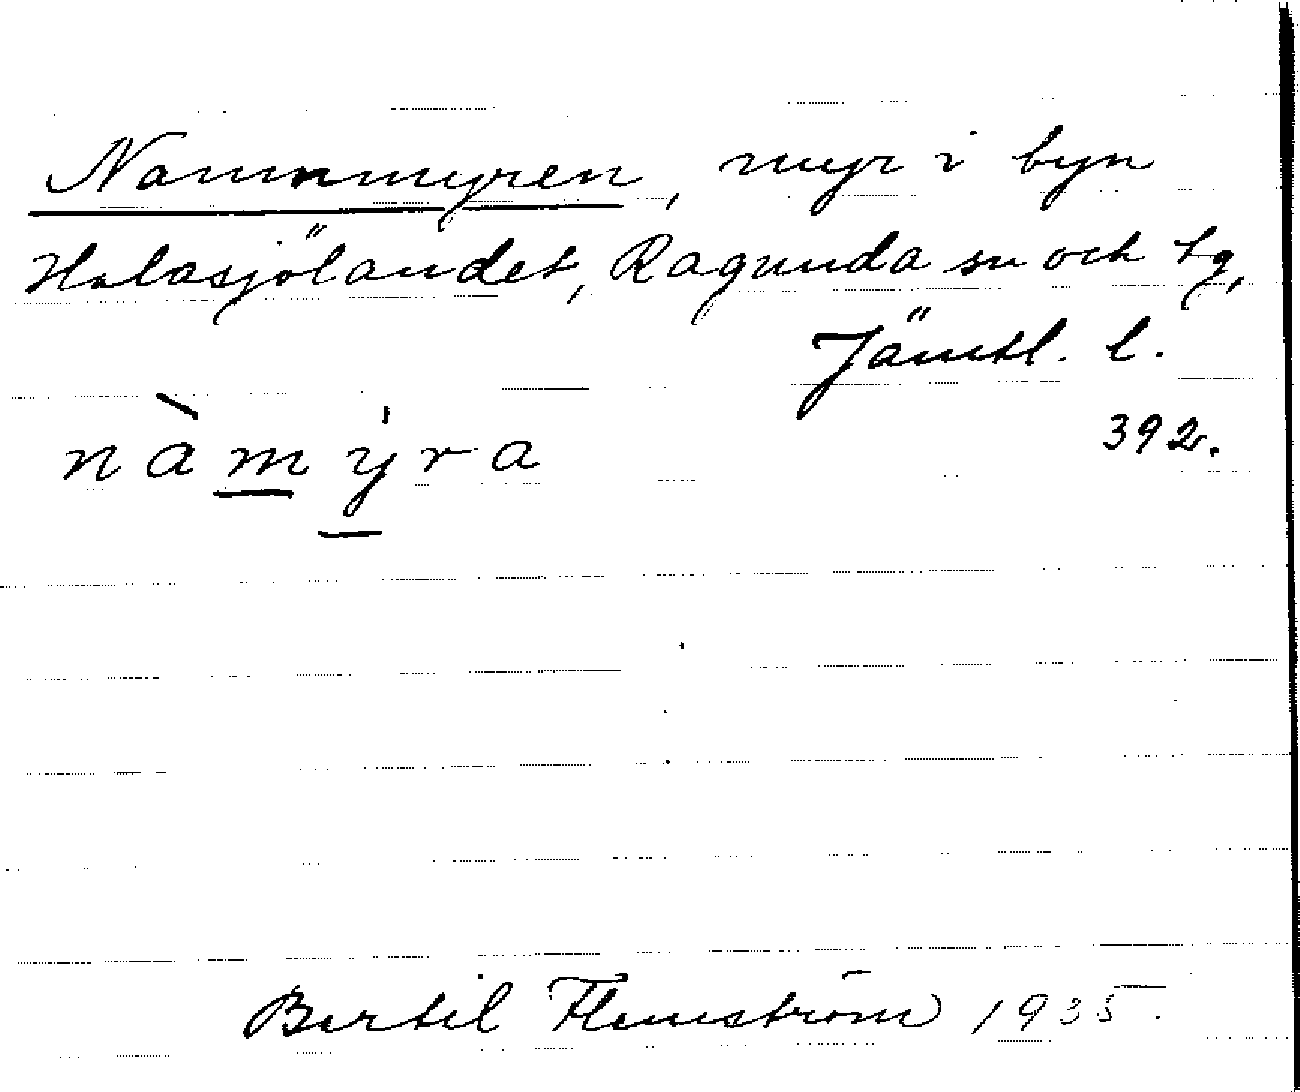 Namnmyren, myr i byn
Halasjölandet, Ragunda sn och tg,
Jämtl. l.
392.
nàmy̍ra
Bertil Flemström 1935.